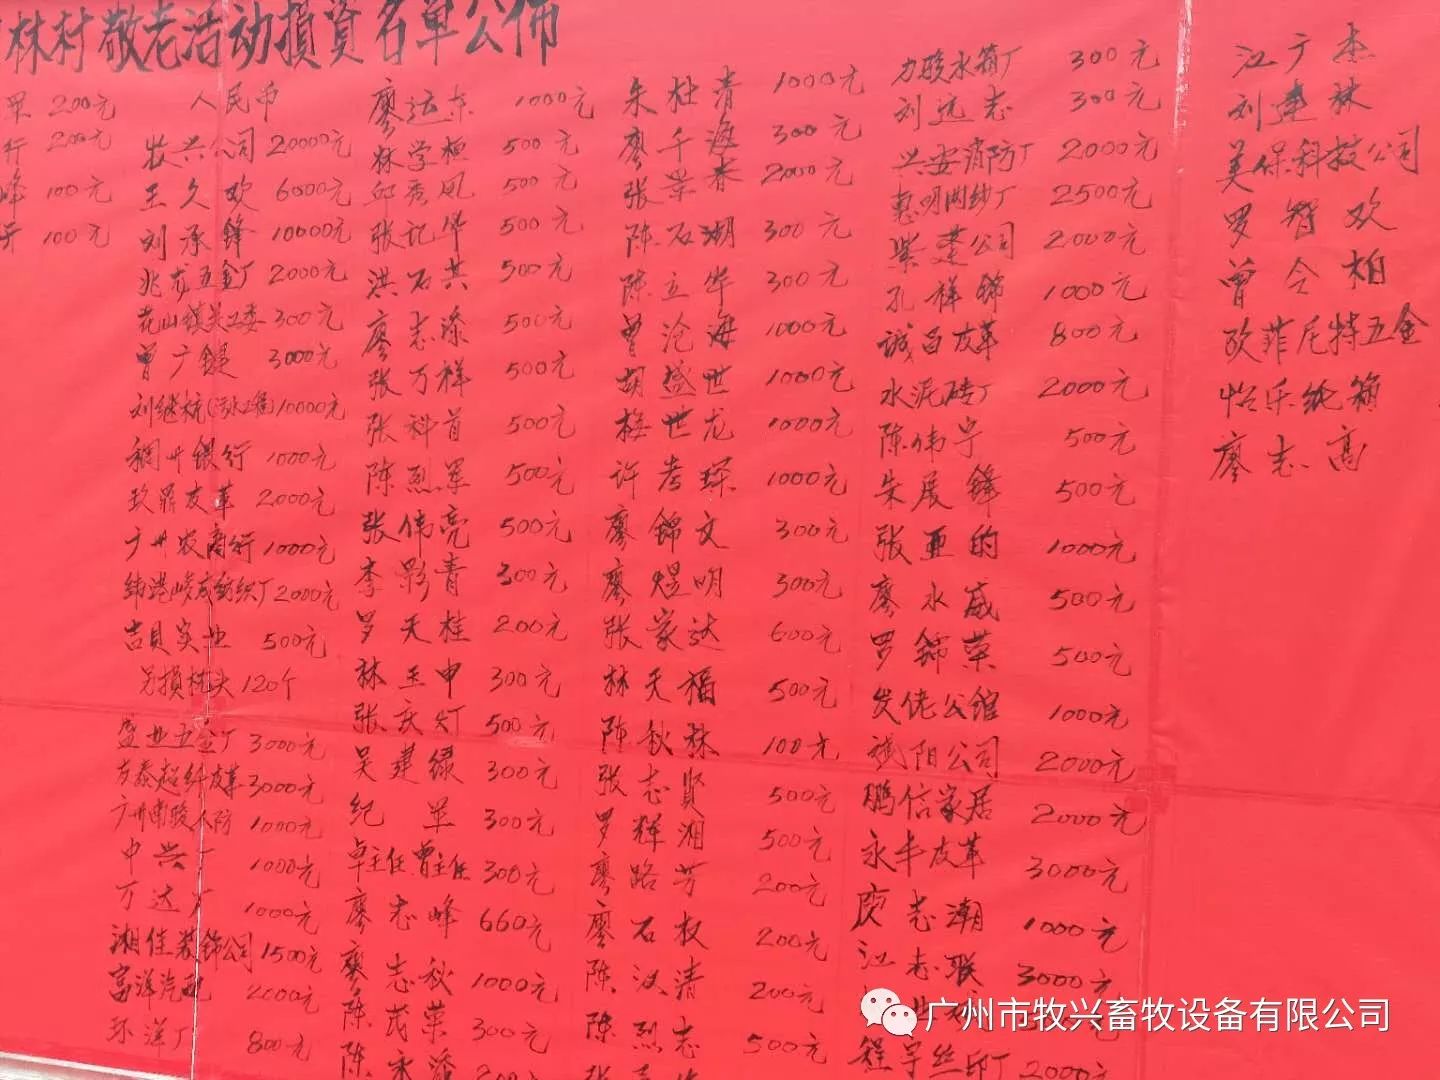 林村敬老活动損資名单公佈
罕 200元
行 200元
峰 100元
100元
人民币
牧兴公司 20000元
王久欢 6000元
刘承鋒 10000元
兆友五金厂 2000元
花山鎮关工委 300元
曾广鍵 3000元
刘继杭(污水工程) 10000元
稠州銀行 1000元
玖鼎皮革 2000元
广州农商行 1000元
纬港峻成紡织厂 2000元
吉貝实业 500元
另損枕头 120个
盛业五金厂 3000元
方泰超纤皮革 3000元
广州南骏人防 1000元
中兴厂 1000元
万达厂 1000元
湘佳装飾公司 1500元
富洋汽配 2000元
环洋厂 800元
廖达东 1000元
林学桓 500元
邱秀凤 500元
张记华 500元
洪石共 500元
廖志添 500元
张万祥 500元
张科首 500元
陈烈军 500元
张伟亮 500元
李影青 300元
罗天桂 200元
林玉中 300元
张庆灯 500元
吴建绿 300元
纪 300元
卓主任曾主任 300元
廖志峰 660元
廖志秋 1000元
陈茂荣 300元
陈永添 200
朱杜清 1000元
廖千海 300元
张荣春 2000元
陈石湖 300元
陈立华 300元
曾沧海 1000元
胡盛世 1000元
梅世龙 1000元
许考琛 1000元
廖錦文 300元
廖煜明 300元
张家达 600元
林天福 500元
陈秋林 100元
张志贤 500元
罗辉湘 500元
廖路芳 200元
廖石权 200元
陈汉清 200元
陈烈志 500元
张
力駿水箱厂 300元
刘远志 300元
兴安消防厂 2000元
惠明网纱厂 2500元
紫莲公司 2000元
孔祥錦 1000元
誠昌皮革 800元
水泥砖厂 2000元
陈伟宁 500元
朱展鋒 500元
张亚的 1000元
廖永威 500元
罗錦荣 500元
炭佬公館 1000元
斌阳公司 2000元
鹏信家居 2000元
永丰皮革 3000元
廖志潮 1000元
江志联 3000元
程宇丝印厂 2000元
江广杰
刘建林
美保科技公司
罗智欢
曾令柏
欧菲尼特五金
怡乐纸箱
廖志高
广州市牧兴畜牧设备有限公司